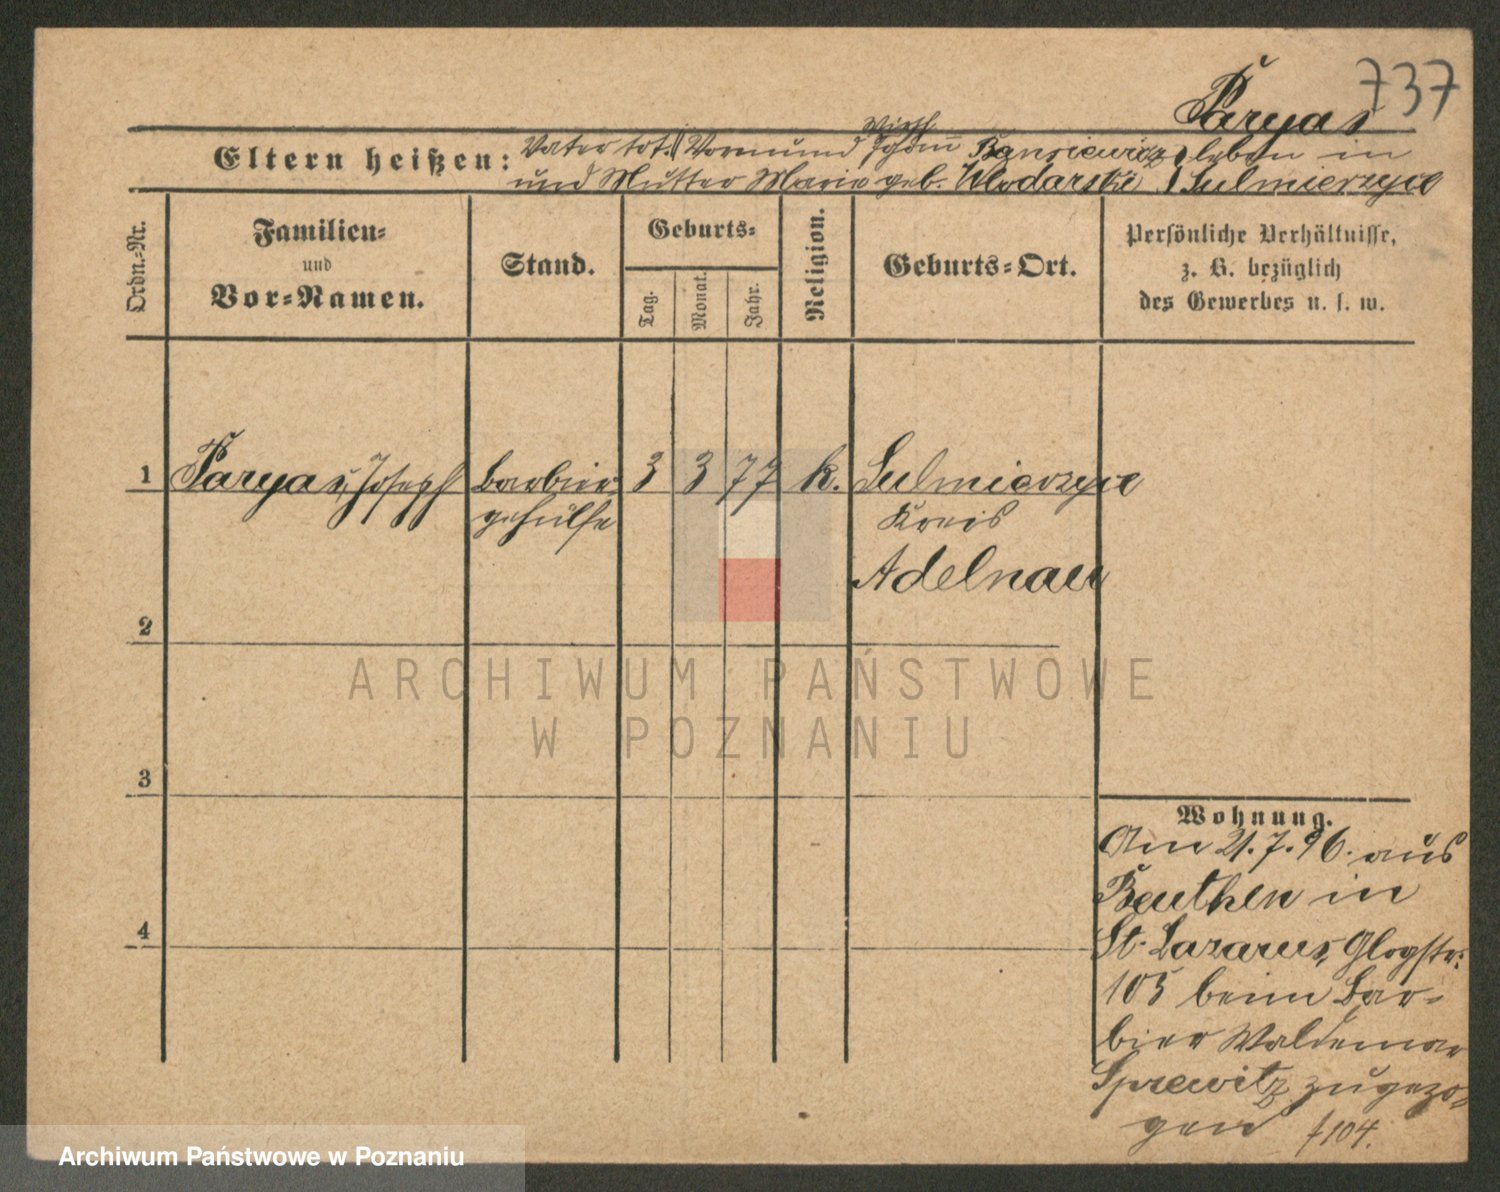 737
Paryas
Eltern heißen: Vater tot. Vormund Wirth Johann leben in
und Mutter Marie geb. Wlodarski Sulmierzyce
Ordn.-Nr.
Familien-
und
Vor-Namen.
Stand.
Geburts-
Tag.
Monat.
Jahr.
Religion.
Geburts-Ort.
Persönliche Verhältnisse,
z. B. bezüglich
des Gewerbes u. s. w.
1 Paryas, Joseph Barbier 3 3 77 k. Sulmierzyce
gehülfe Kreis
Adelnau
2
3
4
Wohnung.
Am 21.7.96. aus
Beuthen in
St. Lazarus, Glogstr.
105 beim Bar-
bier Waldemar
Sprewitz zugezo-
gen f 104.
ARCHIWUM PAŃSTWOWE
W POZNANIU
Archiwum Państwowe w Poznaniu